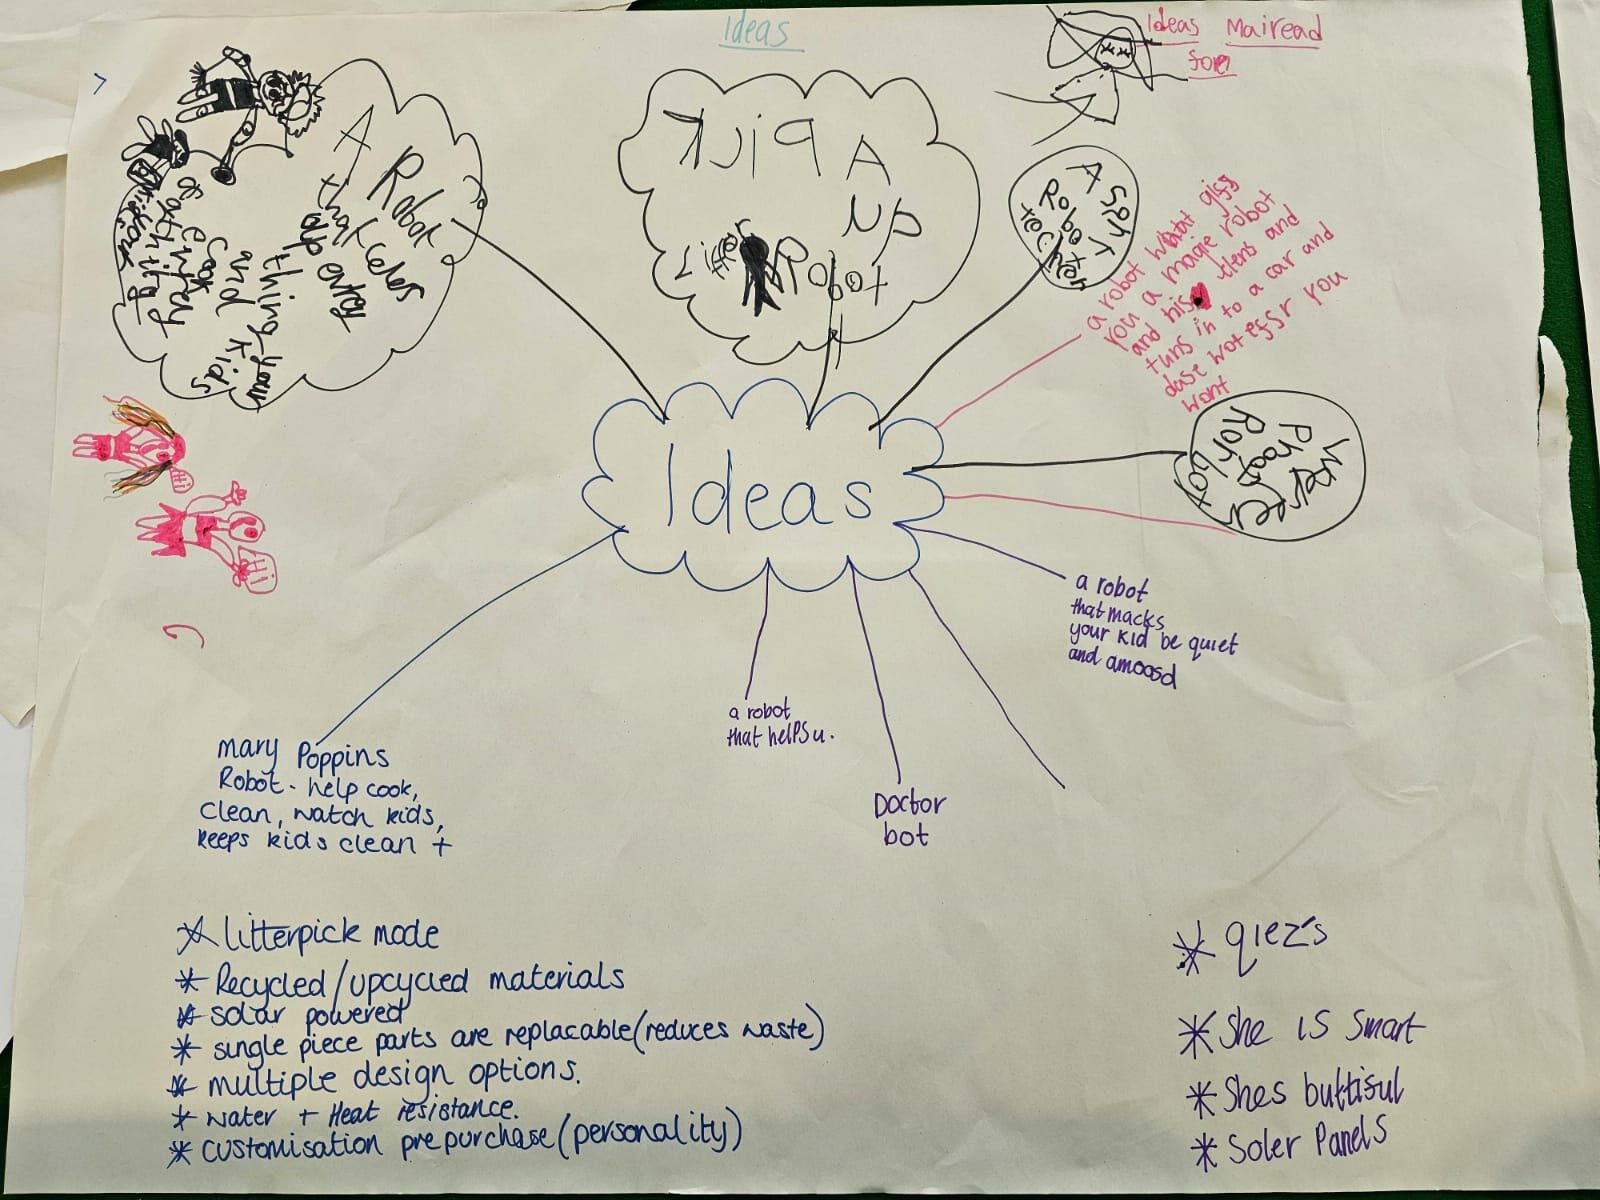 Ideas
Ideas Mairead
for
A
Robot
that
help
thing your
and kids
Cook
A Pick
up
Litter Robot
A
Robot
techer
a robot that giss
you a magie robot
and his tlens and
turns in to a car and
dase wotessr you
wont
Ideas
Proof
Hi
Hi
a robot
that macks
your kid be quiet
and amoosd
a robot
that helps u.
Doctor
bot
mary Poppins
Robot - help cook,
Clean, watch kids,
keeps kids clean +
* litterpick mode
* Recycled/upcycled materials
* solar powered
* single piece parts are replacable (reduces waste)
* multiple design options.
* water + Heat resistance.
* customisation prepurchase (personality)
* qiez's
* She is smart
* Shes buttiful
* Soler Panels